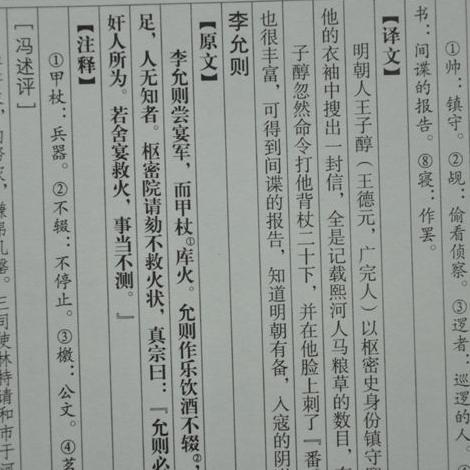 ①帅：镇守。②觇：偷看侦察。③逻者：巡逻的人
书：间谍的报告。⑧寝：作罢。
【译文】
明朝人王子醇（王德元，广完人）以枢密史身份镇守
他的衣袖中搜出一封信，全是记载熙河人马粮草的数目，
子醇忽然命令打他背杖二十下，并在他脸上刺了『番
也很丰富，可得到间谍的报告，知道明朝有备，入寇的阴
李允则
【原文】
李允则尝宴军，而甲杖①库火。允则作乐饮酒不辍②，
足，人无知者。枢密院请劾不救火状，真宗曰：『允则必
奸人所为。若舍宴救火，事当不测。』
【注释】
①甲杖：兵器。②不辍：不停止。③檄：公文。④茗
[冯述评]
三司使林特请和市于河